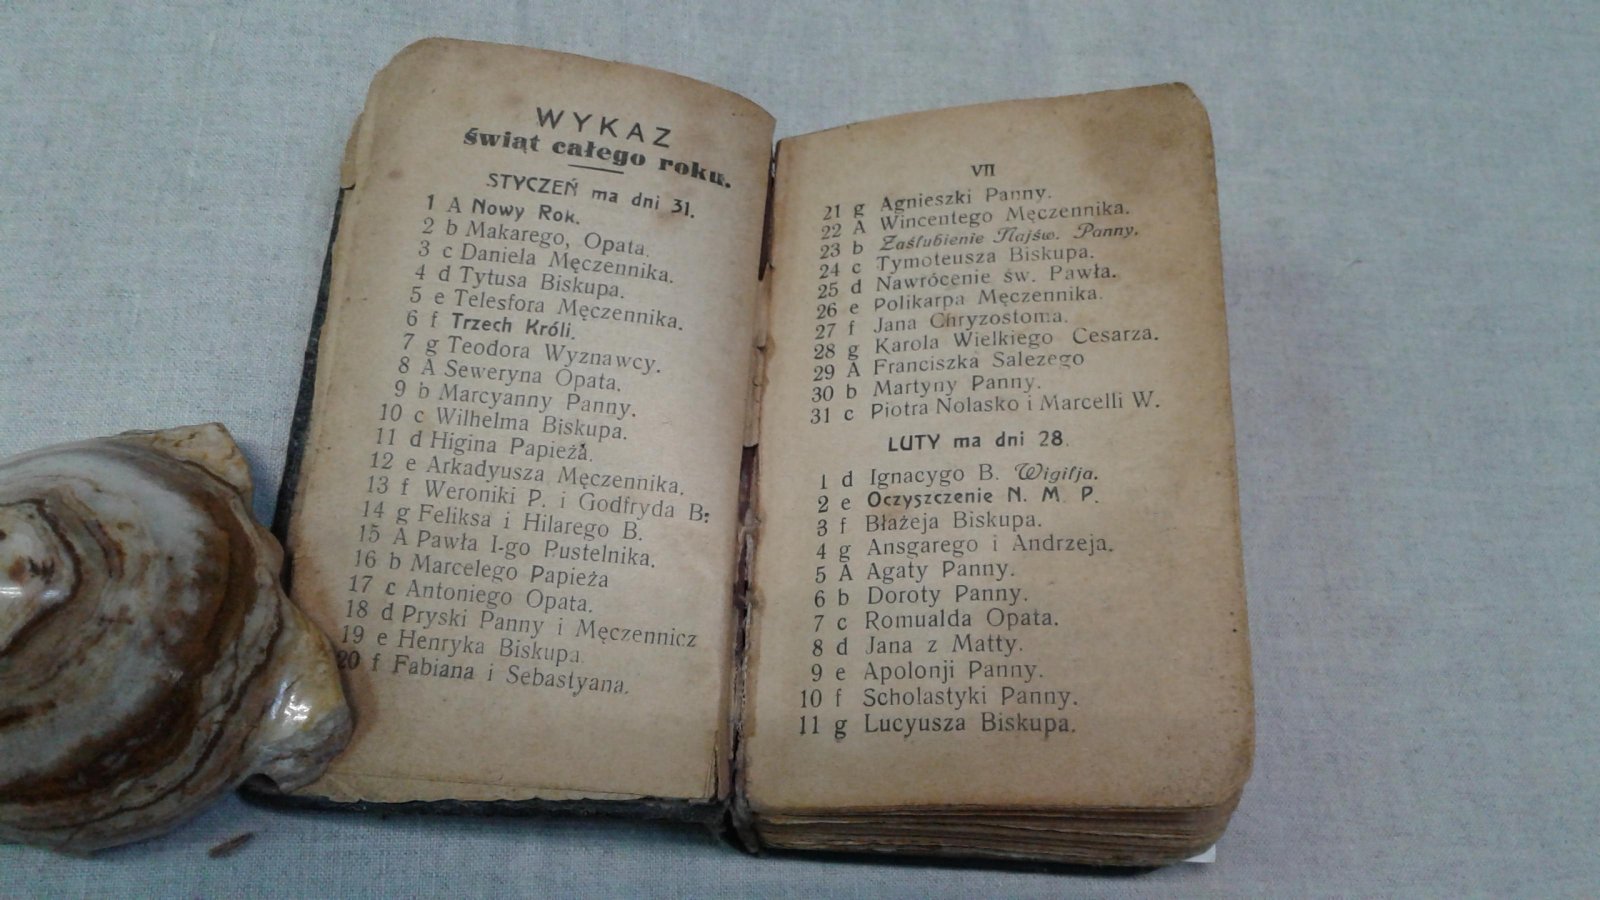 WYKAZ
świąt całego roku.
STYCZEŃ ma dni 31.
1 A Nowy Rok.
2 b Makarego, Opata.
3 c Daniela Męczennika.
4 d Tytusa Biskupa.
5 e Telesfora Męczennika.
6 f Trzech Króli.
7 g Teodora Wyznawcy.
8 A Seweryna Opata.
9 b Marcyanny Panny.
10 c Wilhelma Biskupa.
11 d Higina Papieża.
12 e Arkadyusza Męczennika.
13 f Weroniki P. i Godfryda B.
14 g Feliksa i Hilarego B.
15 A Pawła I-go Pustelnika.
16 b Marcelego Papieża
17 c Antoniego Opata.
18 d Pryski Panny i Męczennicz
19 e Henryka Biskupa.
20 f Fabiana i Sebastyana.
VII
21 g Agnieszki Panny.
22 A Wincentego Męczennika.
23 b Zaślubienie Najśw. Panny.
24 c Tymoteusza Biskupa.
25 d Nawrócenie św. Pawła.
26 e Polikarpa Męczennika.
27 f Jana Chryzostoma.
28 g Karola Wielkiego Cesarza.
29 A Franciszka Salezego
30 b Martyny Panny.
31 c Piotra Nolasko i Marcelli W.
LUTY ma dni 28.
1 d Ignacygo B. Wigilja.
2 e Oczyszczenie N. M. P.
3 f Błażeja Biskupa.
4 g Ansgarego i Andrzeja.
5 A Agaty Panny.
6 b Doroty Panny.
7 c Romualda Opata.
8 d Jana z Matty.
9 e Apolonji Panny.
10 f Scholastyki Panny.
11 g Lucyusza Biskupa.